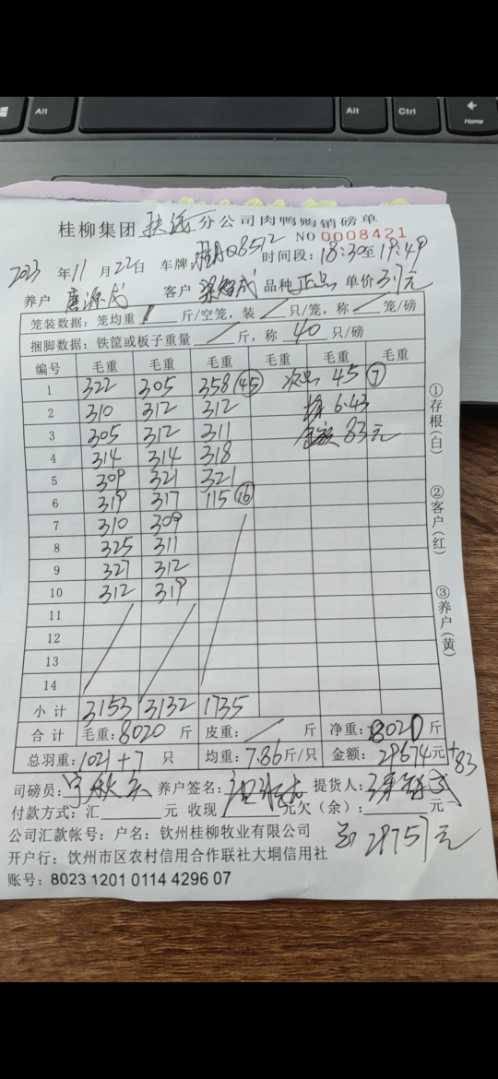 Alt
Alt
Ctrl
Home
桂柳集团 扶绥 分公司肉鸭购销磅单
NO 0008421
2023 年 11 月 22 日 车牌 Q8512 时间段: 18:30 至 19:49
养户 客户 品种 正品 单价 3.7元
笼装数据: 笼均重 / 斤/空笼, 装 / 只/笼, 称 / 笼/磅
捆脚数据: 铁筐或板子重量 / 斤, 称 40 只/磅
编号 毛重 毛重 毛重 毛重 毛重 毛重
1 322 305 358 (45) 次品 45 (7)
2 310 312 312 6.43
3 305 312 311 83元
4 314 314 318
5 309 321 321
6 319 317 115 (16)
7 310 309
8 325 311
9 327 312
10 312 319
11
12
13
14
小计 3153 3132 1735
合计 毛重: 8020 斤 皮重: / 斤 净重: 8020 斤
总羽重: 1021+7 只 均重: 7.86 斤/只 金额: 29674 元 +83
司磅员: 养户签名: 提货人:
付款方式: 汇 元 收现 元 欠(余): 元
公司汇款帐号: 户名: 钦州桂柳牧业有限公司
总 29757元
开户行: 钦州市区农村信用合作联社大垌信用社
账号: 8023 1201 0114 4296 07
①存根(白)
②客户(红)
③养户(黄)